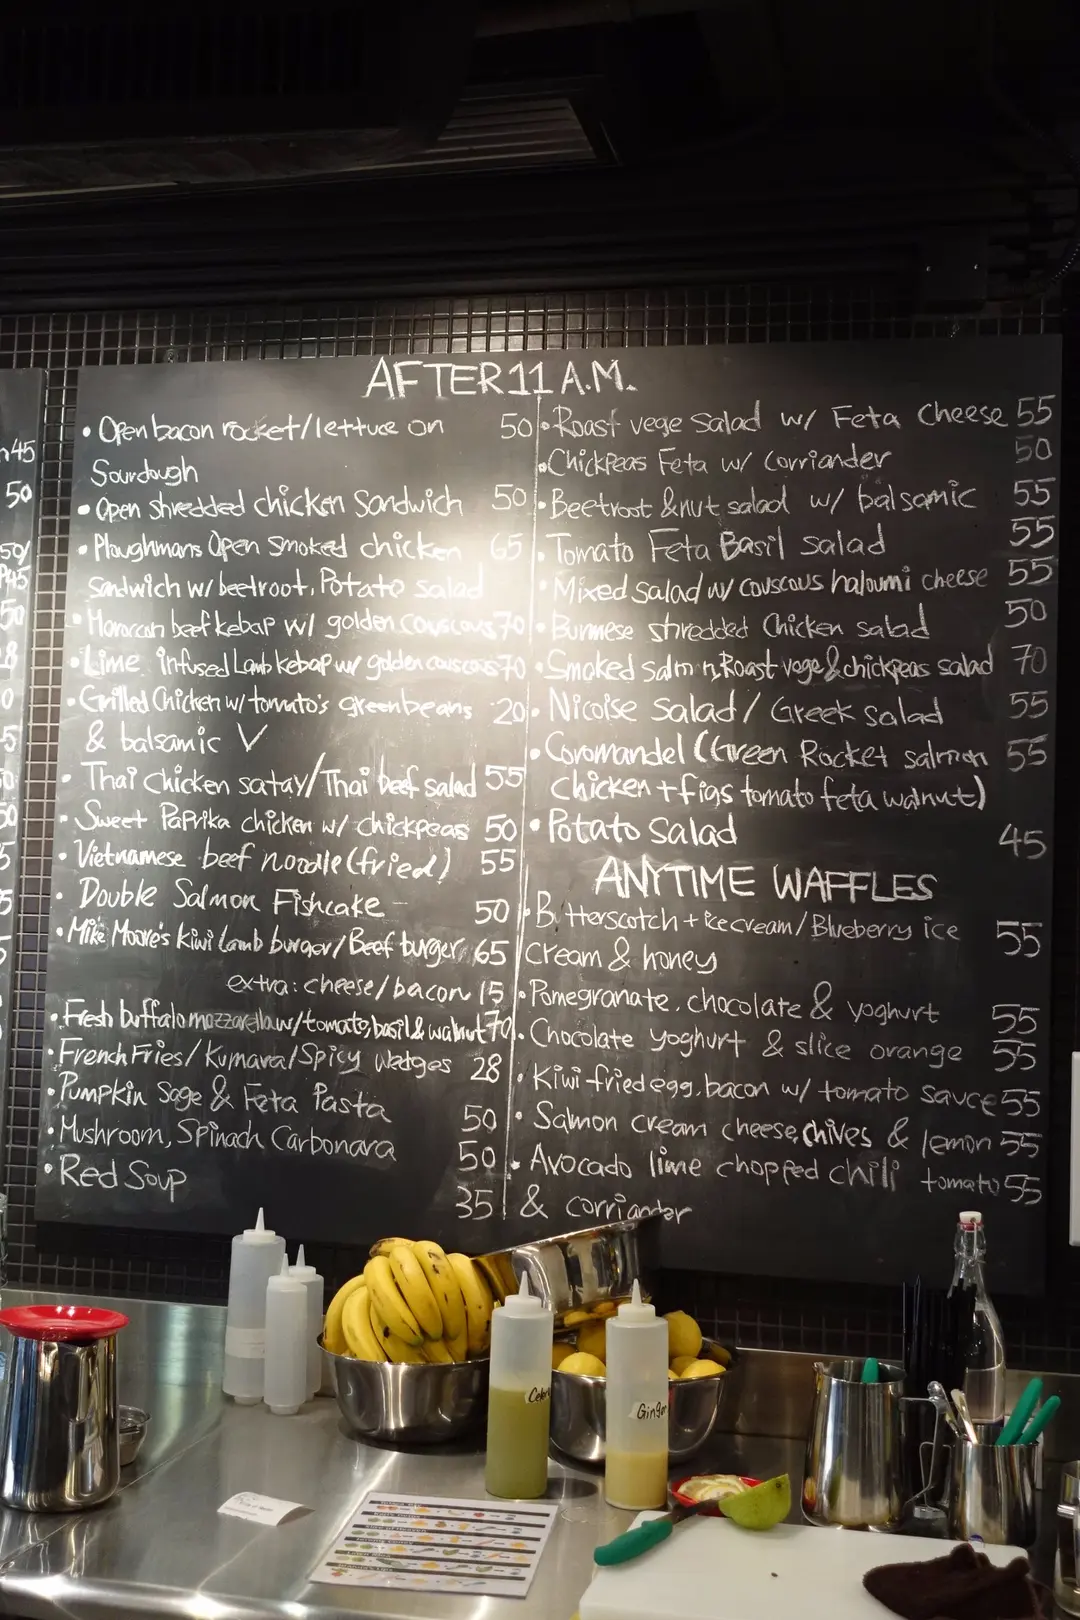 AFTER 11 A.M.
• Open bacon rocket/lettuce on 50
Sourdough
• Open Shredded chicken Sandwich 50
• Ploughmans Open Smoked chicken 65
sandwich w/ beetroot, Potato salad
• Moroccan beef kebap w/ golden couscous 70
• Lime infused Lamb kebap w/ golden couscous 70
• Grilled Chicken w/ tomato's greenbeans 20
& balsamic V
• Thai Chicken satay/Thai beef salad 55
• Sweet Paprika chicken w/ chickpeas 50
• Vietnamese beef noodle (fried) 55
• Double Salmon Fishcake 50
• Mike Moore's Kiwi Lamb burger/Beef burger 65
extra: cheese/bacon 15
• Fresh buffalo mozzarella w/ tomato, basil & walnut 70
• French Fries/Kumara/Spicy wedges 28
• Pumpkin Sage & Feta Pasta 50
• Mushroom, Spinach Carbonara 50
• Red Soup 35
• Roast vege Salad w/ Feta Cheese 55
• Chickpeas Feta w/ corriander 50
• Beetroot & nut salad w/ balsamic 55
• Tomato Feta Basil salad 55
• Mixed Salad w/ couscous haloumi cheese 55
• Burmese shredded Chicken salad 50
• Smoked salm n, Roast vege & chickpeas salad 70
• Nicoise Salad / Greek Salad 55
• Coromandel (Green Rocket salmon 55
Chicken + figs tomato feta walnut)
• Potato Salad 45
ANYTIME WAFFLES
• B tterscotch + ice cream / Blueberry ice 55
cream & honey
• Pomegranate, chocolate & yoghurt 55
• Chocolate yoghurt & slice orange 55
• Kiwi fried egg, bacon w/ tomato sauce 55
• Salmon cream cheese, chives & lemon 55
• Avocado lime chopped chili tomato 55
& corriander
45
50
50/
50
Celery
Ginger